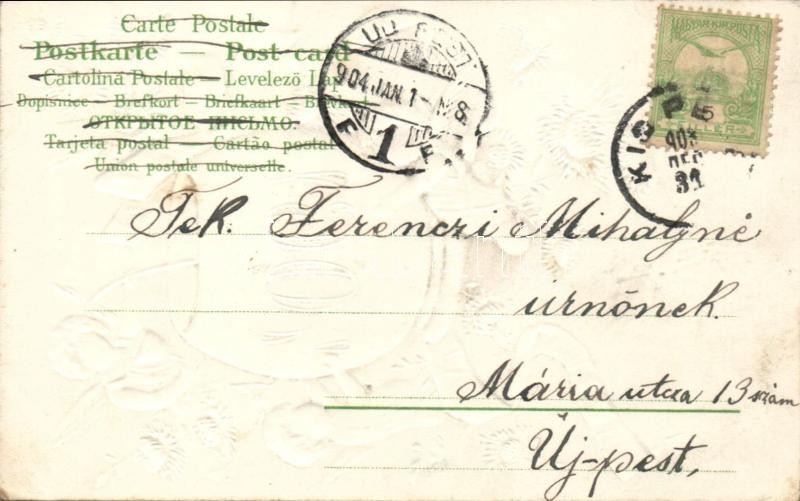 Carte Postale
Postkarte — Post card
Cartolina Postale — Levelező Lap
Dopisnice — Brefkort — Briefkaart — Brevkort
ОТКРЫТОЕ ПИСЬМО.
Tarjeta postal — Cartão postal
Union postale universelle.
904 JAN. 1
1
MAGYAR KIR. POSTA
KISPE
903
DEC
31
Tek. Ferenczi Mihályné
úrnőnek.
Mária utca 13 szám
Új-pest,